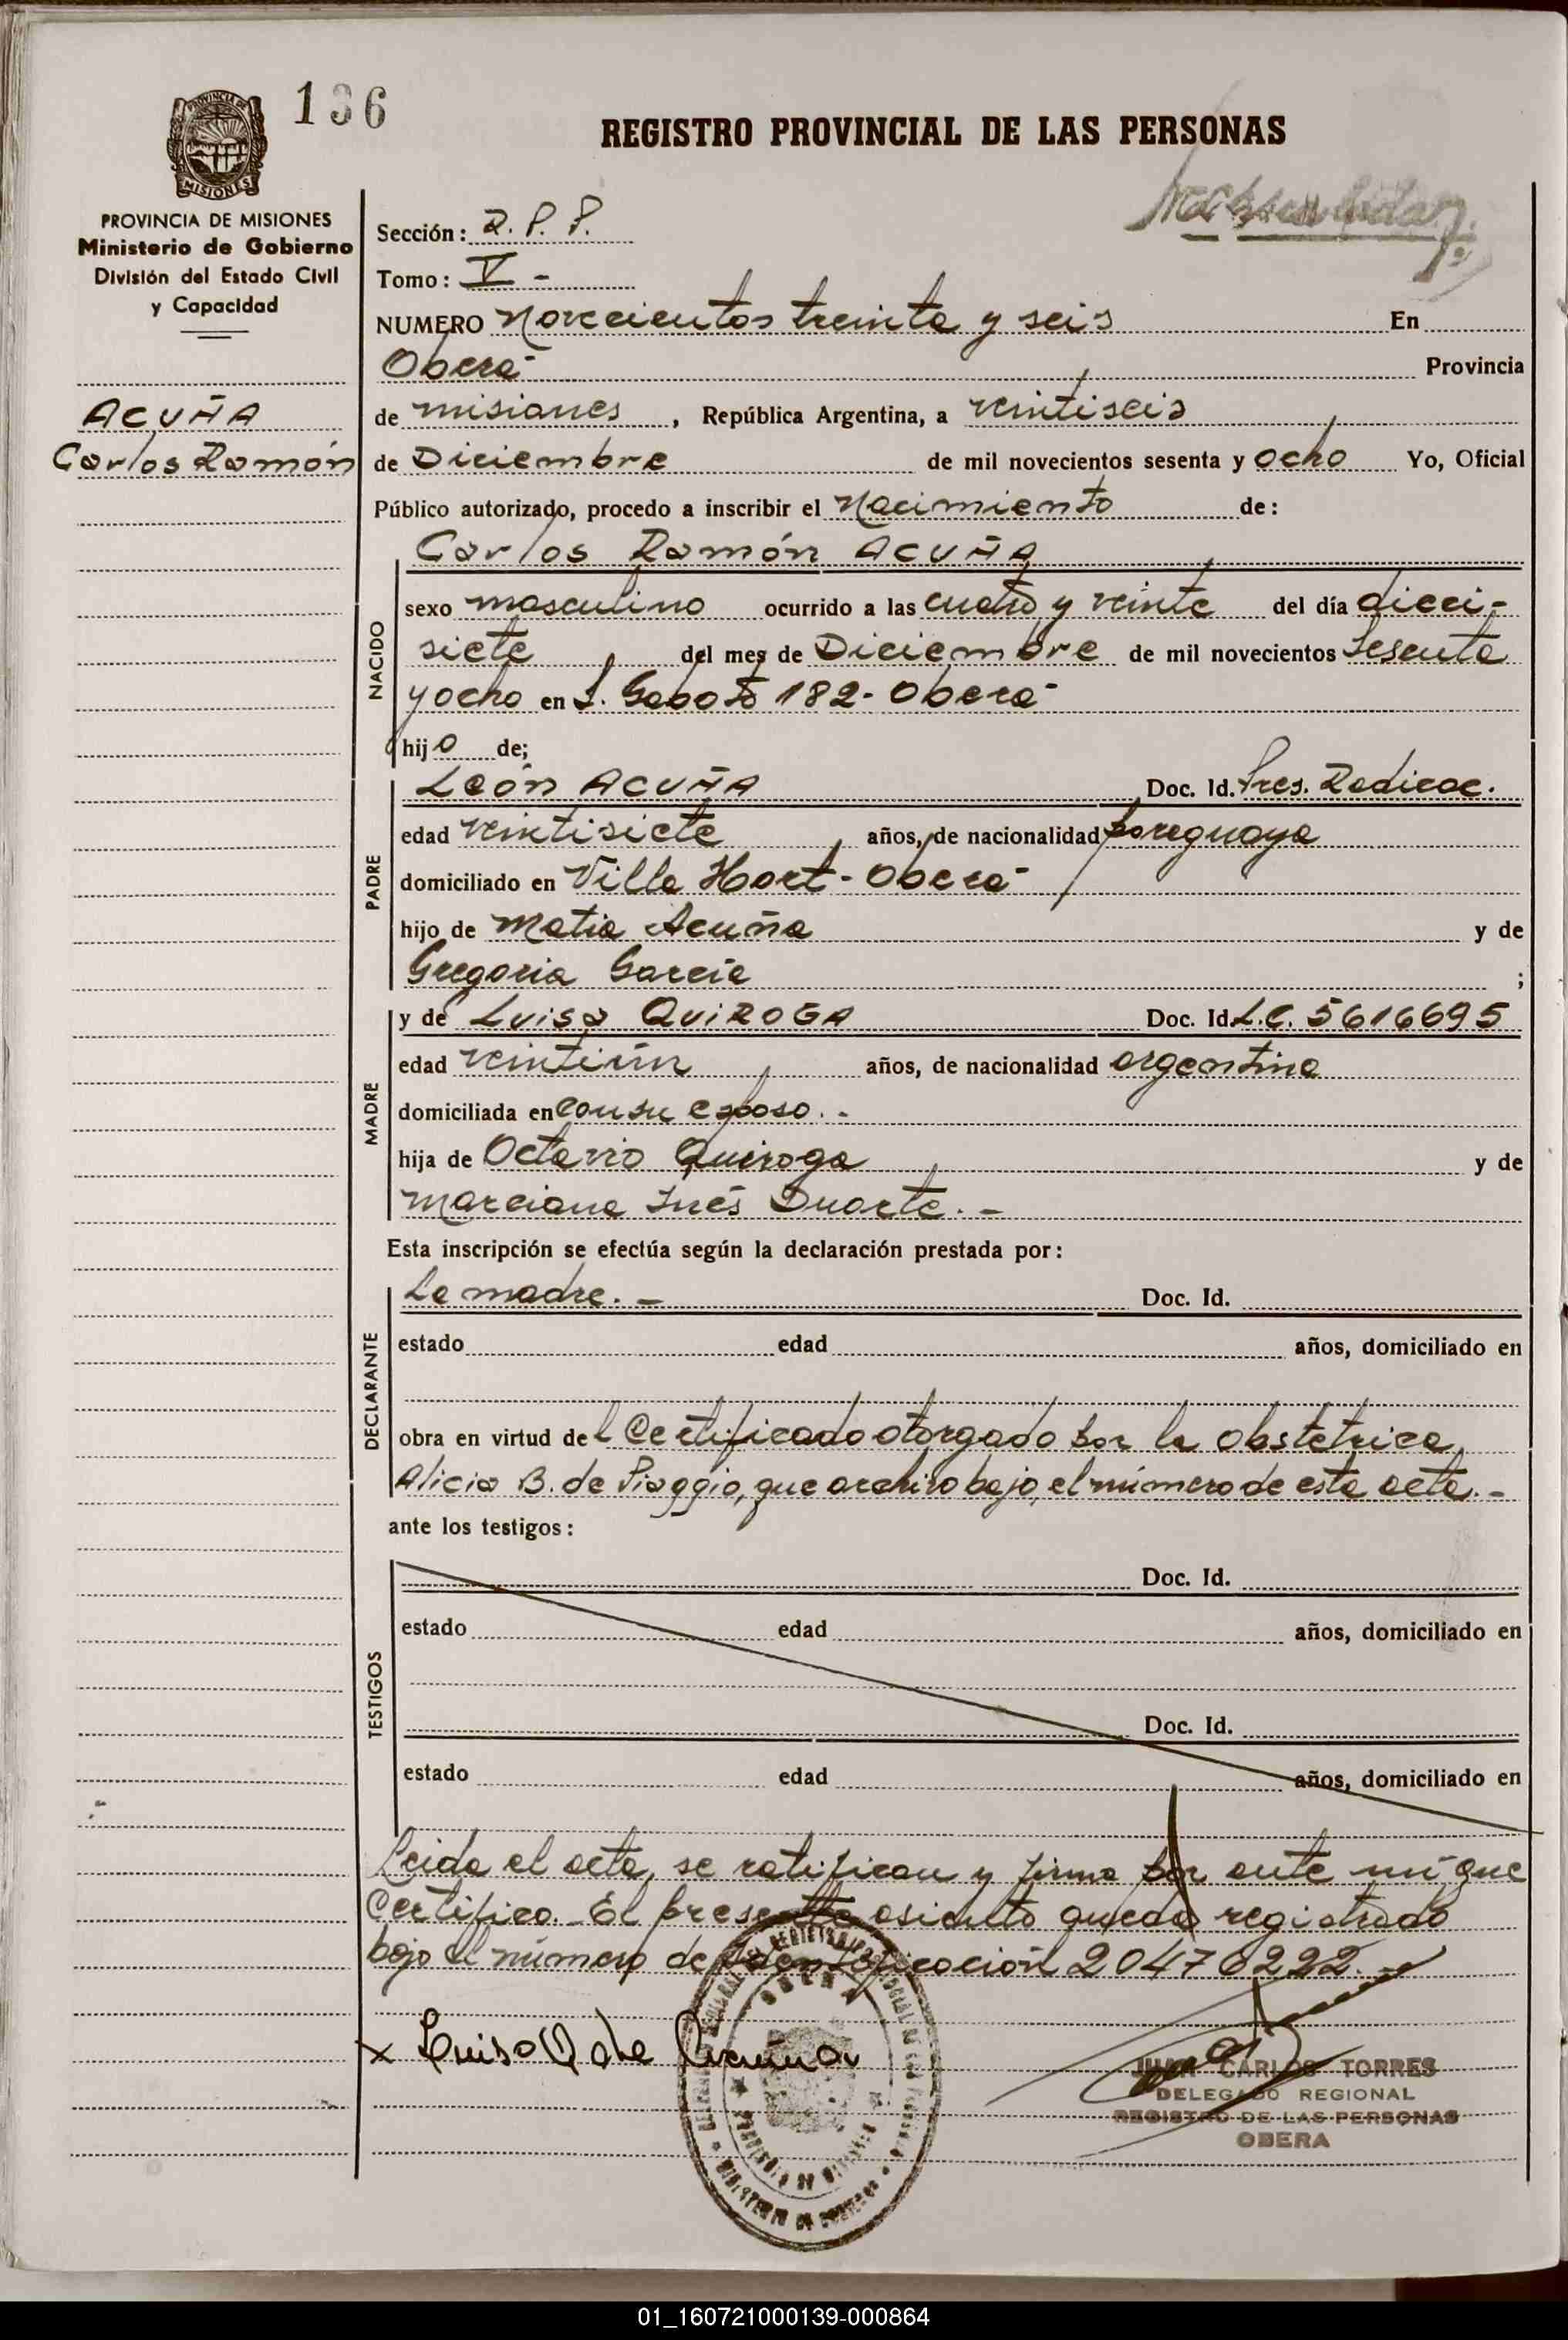 136
REGISTRO PROVINCIAL DE LAS PERSONAS
PROVINCIA DE MISIONES
Ministerio de Gobierno
División del Estado Civil
y Capacidad
ACUÑA
Carlos Ramón
Sección: R. P. P.
Tomo: V -
NUMERO Novecientos treinta y seis En
Oberá Provincia
de misiones, República Argentina, a veintiseis
de Diciembre de mil novecientos sesenta y ocho Yo, Oficial
Público autorizado, procedo a inscribir el Nacimiento de:
NACIDO
Carlos Ramón ACUÑA
sexo masculino ocurrido a las cuatro y veinte del día dieci-
siete del mes de Diciembre de mil novecientos sesenta
y ocho en S. Gaboto 182 - Oberá
hijo de;
PADRE
León ACUÑA Doc. Id. Pres. Radicac.
edad veintisiete años, de nacionalidad paraguaya
domiciliado en Villa Hort - Oberá
hijo de Matia Acuña y de
Gregoria García ;
MADRE
y de Luisa QUIROGA Doc. Id. L.C. 5616695
edad veintiún años, de nacionalidad argentina
domiciliada en con su esposo. -
hija de Octavio Quiroga y de
Marciana Inés Duarte. -
Esta inscripción se efectúa según la declaración prestada por:
DECLARANTE
La madre. - Doc. Id.
estado edad años, domiciliado en
obra en virtud del Certificado otorgado por la obstetrica,
Alicia B. de Piaggio, que archivo bajo, el número de esta acta. -
ante los testigos:
TESTIGOS
Doc. Id.
estado edad años, domiciliado en
Doc. Id.
estado edad años, domiciliado en
Leida el acta, se ratifican y firma por ante mí que
Certifico. - El presente asiento queda registrado
bajo el número de Identificación 20476222. -
x Luisa Q de Acuña
JUAN CARLOS TORRES
DELEGADO REGIONAL
REGISTRO DE LAS PERSONAS
OBERA
01_160721000139-000864